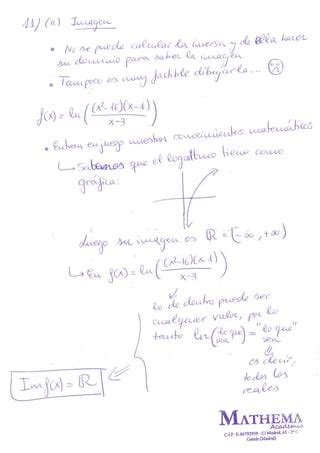 11) (a) Imagen
• No se puede calcular la inversa y de ella hacer
su dominio para saber la imagen
• Tampoco es muy factible dibujarla...
f(x) = ln((x²-16)(x-1)/x-3)
• Entran en juego nuestros conocimientos matemáticos
↳ Sabemos que el logaritmo tiene como
gráfica:
Luego su imagen es ℝ = (-∞, +∞)
↳ En f(x) = ln((x²-16)(x-1)/x-3)
lo de dentro puede ser
cualquier valor, por lo
tanto ln(lo que sea) = "lo que sea"
es decir,
todos los
reales
Imf(x) = ℝ
MATHEMA
Academia
Getafe (Madrid)